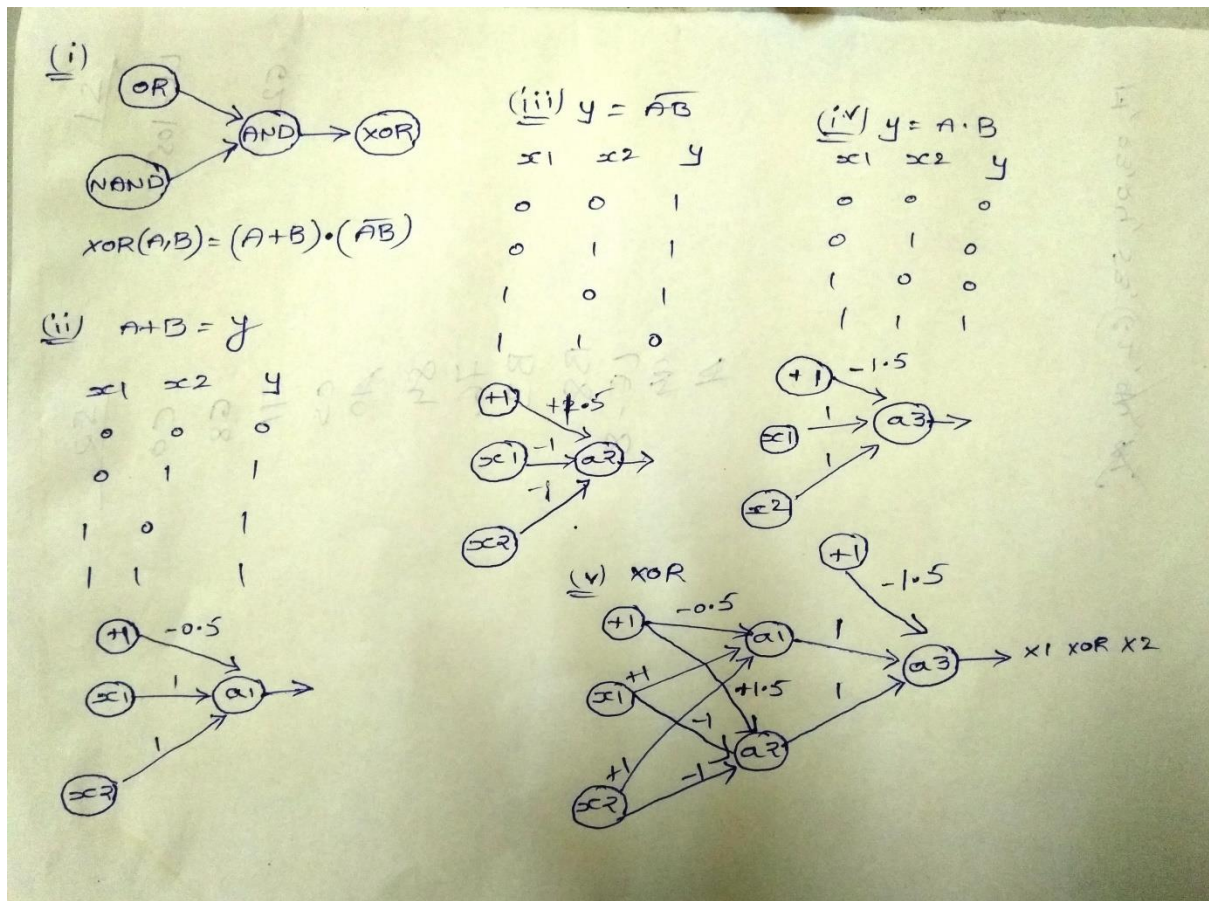 (i)
OR
AND
XOR
NAND
XOR(A,B) = (A+B)•(A̅B̅)
(ii) A+B = y
x1 x2 y
0 0 0
0 1 1
1 0 1
1 1 1
+1 -0.5
x1 1 a1
1
x2
(iii) y = A̅B̅
x1 x2 y
0 0 1
0 1 1
1 0 1
1 1 0
+1 +1.5
x1 -1 a2
-1
x2
(iv) y = A·B
x1 x2 y
0 0 0
0 1 0
1 0 0
1 1 1
+1 -1.5
x1 1 a3
1
x2
(v) XOR
+1
-1.5
+1 -0.5 a1 1
a3 x1 XOR x2
x1 +1 +1.5 1
-1
a2
+1 -1
x2